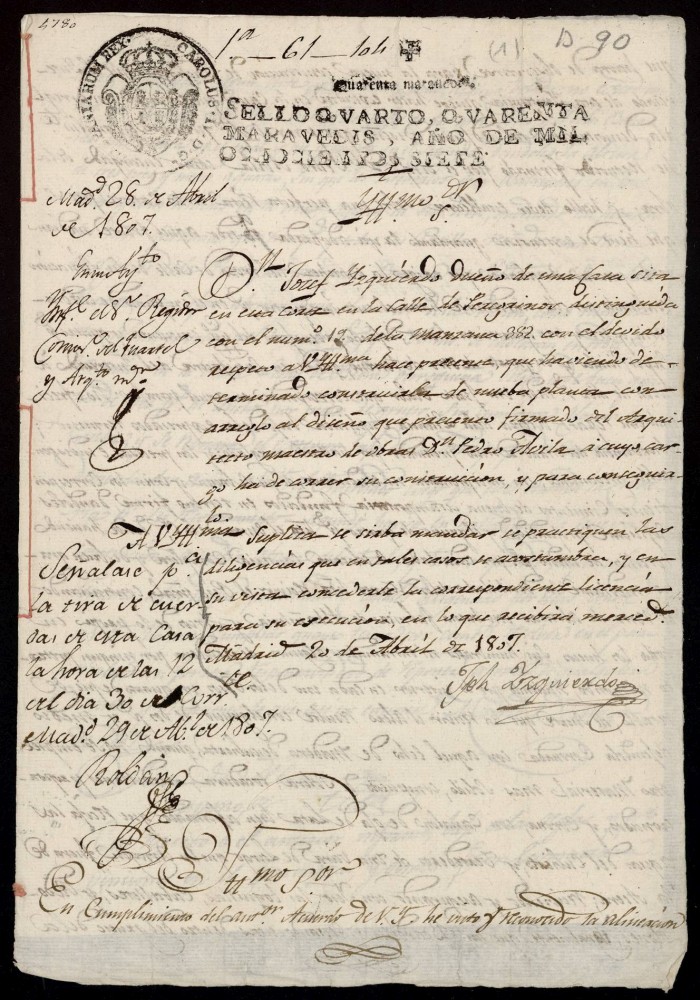 4780
1ª — 61 — 104
(1) D. 90
HISPANIARUM REX. CAROLUS IV D. G.
Quarenta maravedis.
SELLO QVARTO, QVARENTA
MARAVEDIS, AÑO DE MIL
OCHOCIENTOS SIETE
Madᵈ. 28. de Abril
de 1807.
Yllmo Sʳ
Infᵉ el Sʳ. Regidor
Comisº. del Quartel
y Arqᵗᵒ mʳ
Dⁿ Josef Yzquierdo dueño de una casa sita
en esta Corte en la Calle de Peregrinos, distinguida
con el numº. 19 de la manzana 382. con el devido
respeto a V. Yllma hace presente, que haviendo de-
terminado construirla de nueba planta con
arreglo al diseño que presento firmado del Arqui-
tecto maestro de obras Dⁿ Pedro Avila á cuyo car-
go ha de correr su construccion, y para conseguir-
lo
A V. Yllma Suplica se sirba mandar se practiquen las
diligencias que en tales casos se acostumbra, y en
su vista concederle la correspondiente licencia
para su execucion, en lo que recibirá merced.
Madrid 20 de Abril de 1807.
Jph Yzquierdo
Señalase pª
la tira de cuer-
das de esta Casa
la hora de las 12
del dia 30 del Corrᵗᵉ.
Madᵈ. 29 de Abˡ de 1807.
Roldán
Yllmo Sor
En Cumplimiento del antʳ. Acuerdo de V. Y. he visto y reconocido la alineacion